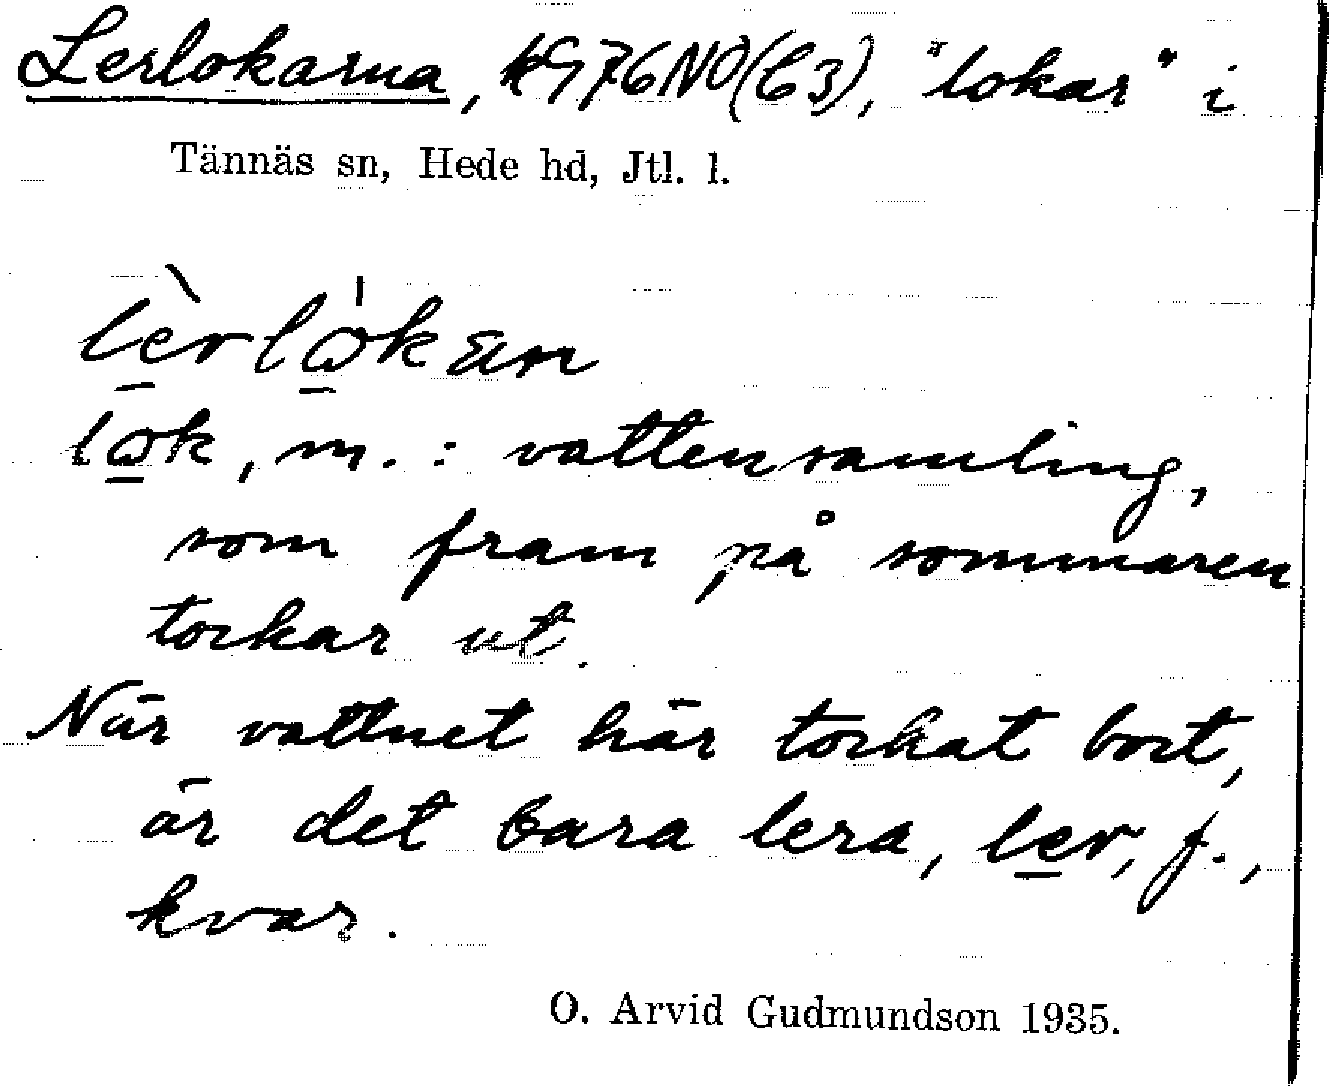 Lerlokarna, kg76NO(C3), "lokar" i
Tännäs sn, Hede hd, Jtl. l.
lèrlω̍kæn
lωk, m. : vattensamling,
som fram på sommaren
torkar ut.
När vattnet här torkat bort,
är det bara lera, ler, f.,
kvar.
O. Arvid Gudmundson 1935.